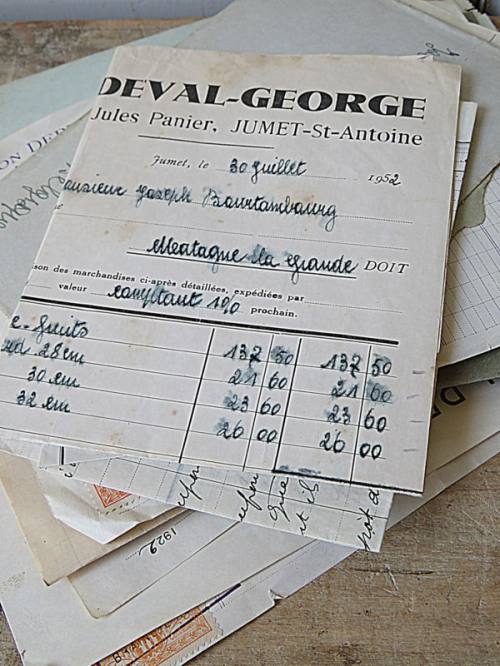 DEVAL-GEORGE
Jules Panier, JUMET-St-Antoine
Jumet, le 30 juillet 1952
Joseph Bourtambourg
Matagne la Grande DOIT
son des marchandises ci-après détaillées, expédiées par
valeur comptant 1% prochain.
e-fruits 137 50 137 50
28 cm 21 60 21 60
30 cm 23 60 23 60
32 cm 26 00 26 00
1929